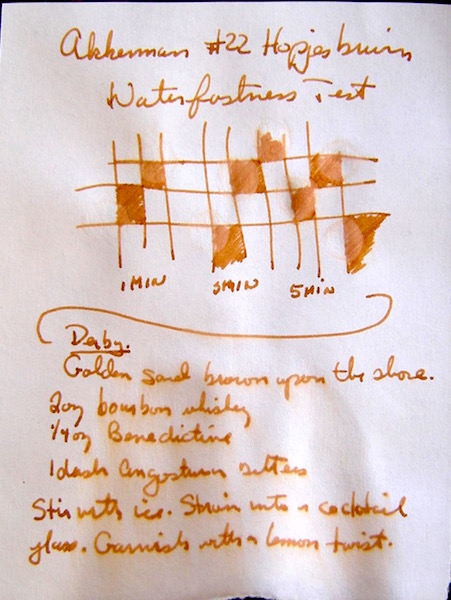 Akkerman #22 Hopjesbruin
Waterfastness Test
1 MIN 3 MIN 5 MIN
Derby.
Golden sand brown upon the shore.
2oz bourbon whiskey
1/4oz Benedictine
1 dash Angostura bitters
Stir with ice. Strain into a cocktail
glass. Garnish with a lemon twist.